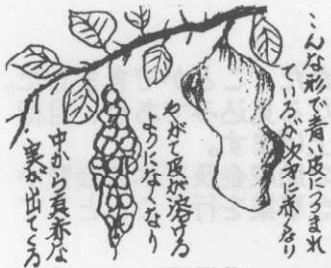 こんな形で青い皮につつまれ
ているが次才に赤くなり
やがて皮が溶ける
ようになくなり
中から真赤な
実が出てくる